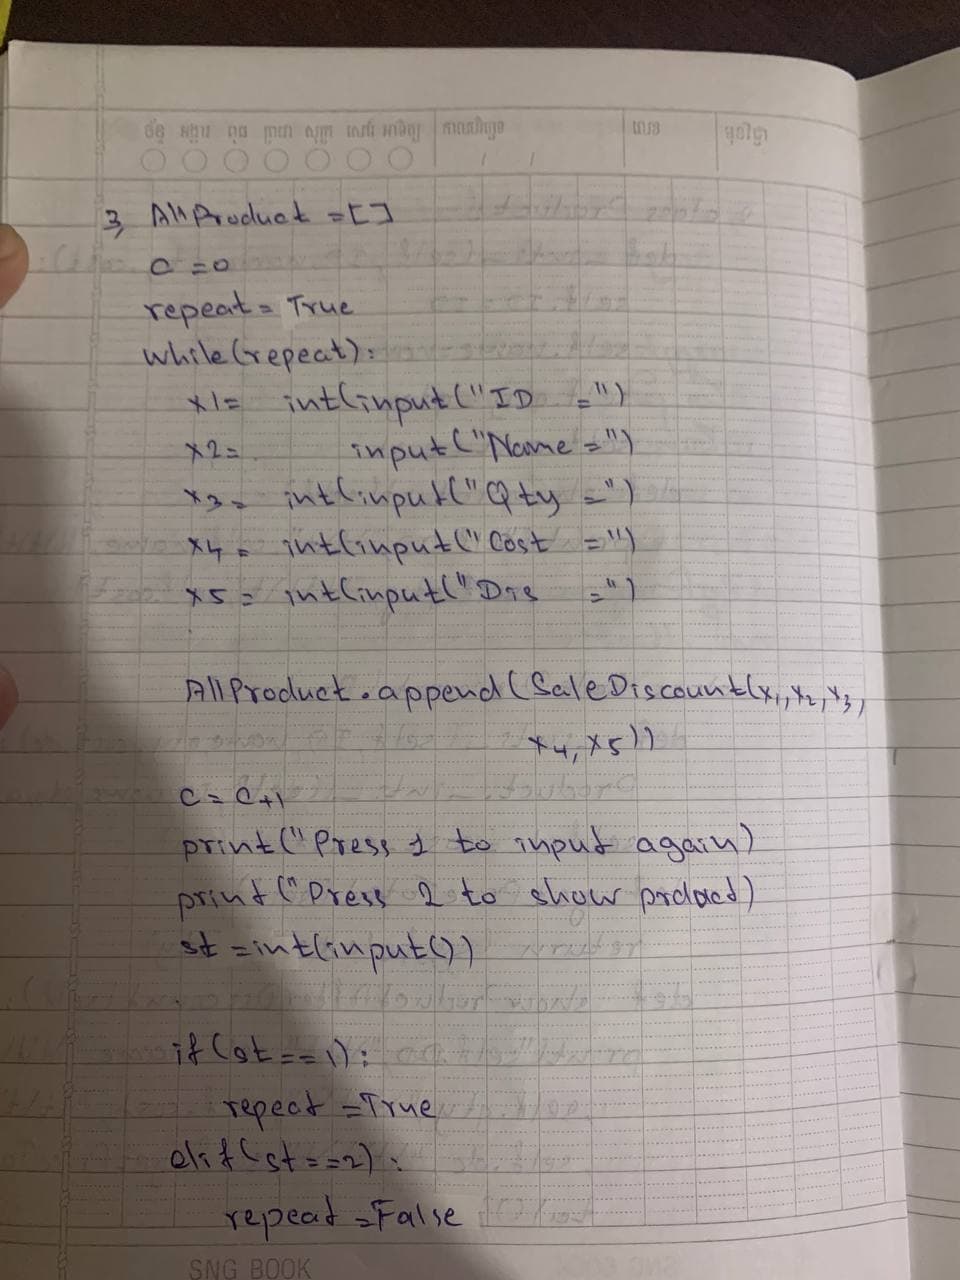 ច័ន្ទ អង្គារ ពុធ ព្រហ សុក្រ សៅរ៍ អាទិត្យ កាលបរិច្ឆេទ លេខ មុខវិជ្ជា
/ /
3, AllProduct = []
c = 0
repeat = True
while(repeat):
x1= int(input("ID =")
x2= input("Name =")
x3= int(input("Qty =")
x4= int(input("Cost =")
x5= int(input("Dis =")
AllProduct.append(SaleDiscount(x1,x2,x3,
x4,x5))
c = c+1
print("Press 1 to input again)
print("Press 2 to show prdact)
st =int(input())
if(st==1):
repeat =True
elif(st==2):
repeat =False
SNG BOOK